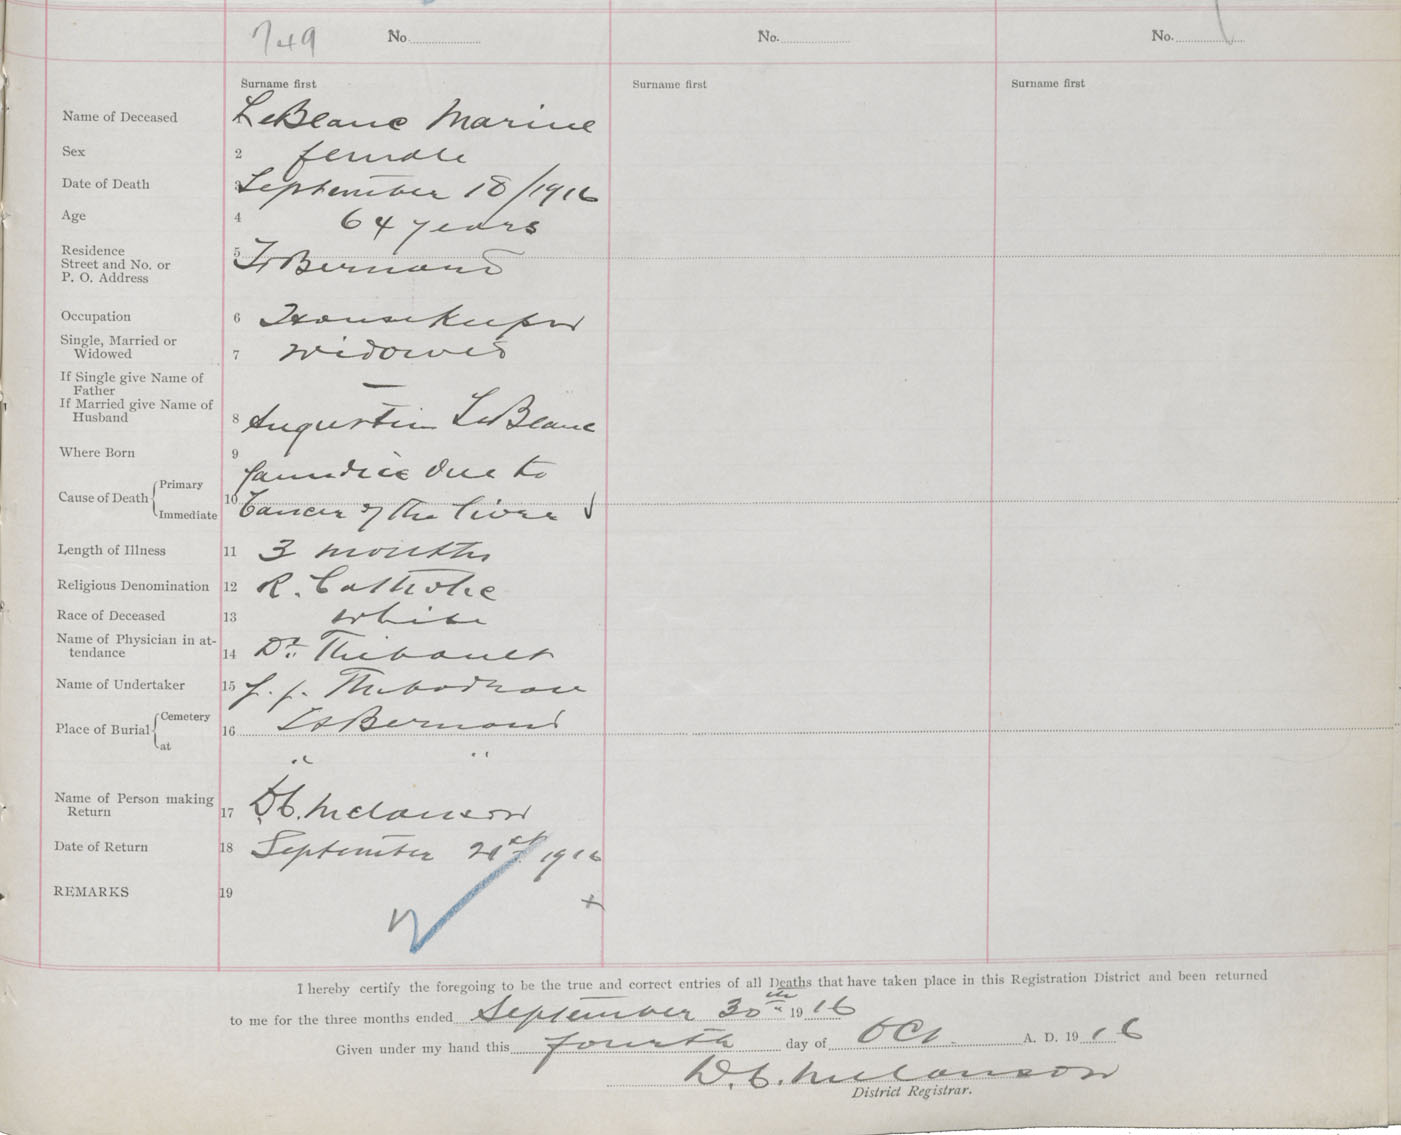 749 No. No. No.
Surname first Surname first Surname first
Name of Deceased 1 LeBlanc Marine
Sex 2 female
Date of Death 3 September 18/1916
Age 4 64 years
Residence
Street and No. or
P. O. Address 5 St Bernard
Occupation 6 Housekeeper
Single, Married or
Widowed 7 widowed
If Single give Name of
Father —
If Married give Name of
Husband 8 Augustin LeBlanc
Where Born 9
Cause of Death Primary Jaundice due to
Immediate 10 Cancer of the liver
Length of Illness 11 3 months
Religious Denomination 12 R. Catholic
Race of Deceased 13 white
Name of Physician in at-
tendance 14 Dr. Thibault
Name of Undertaker 15 J. J. Thibodeau
Place of Burial Cemetery 16 St Bernard
at " "
Name of Person making
Return 17 D. C. Melanson
Date of Return 18 September 21st 1916
REMARKS 19
I hereby certify the foregoing to be the true and correct entries of all Deaths that have taken place in this Registration District and been returned
to me for the three months ended September 30th 1916
Given under my hand this fourth day of Oct. A. D. 1916
D. C. Melanson
District Registrar.